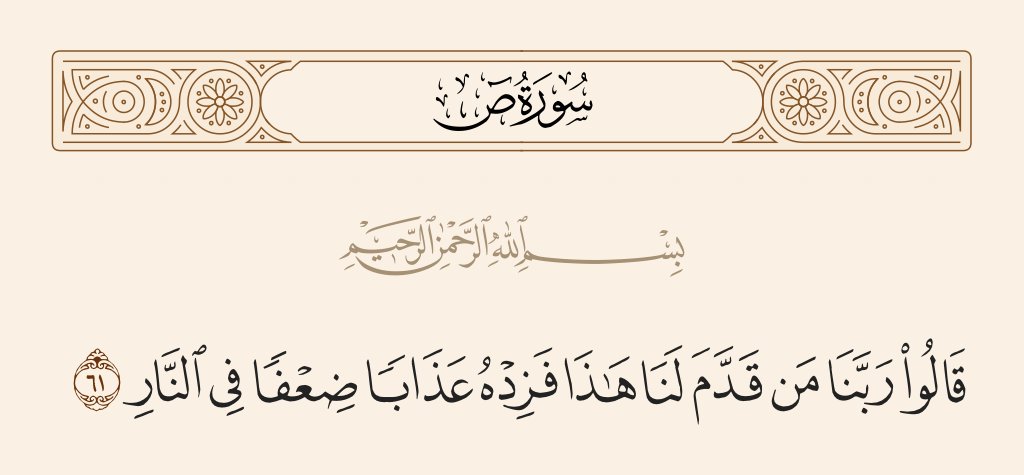 سُورَةُ صٓ
بِسْمِ ٱللَّهِ ٱلرَّحْمَٰنِ ٱلرَّحِيمِ
قَالُوا۟ رَبَّنَا مَن قَدَّمَ لَنَا هَـٰذَا فَزِدْهُ عَذَابًا ضِعْفًا فِى ٱلنَّارِ ٦١